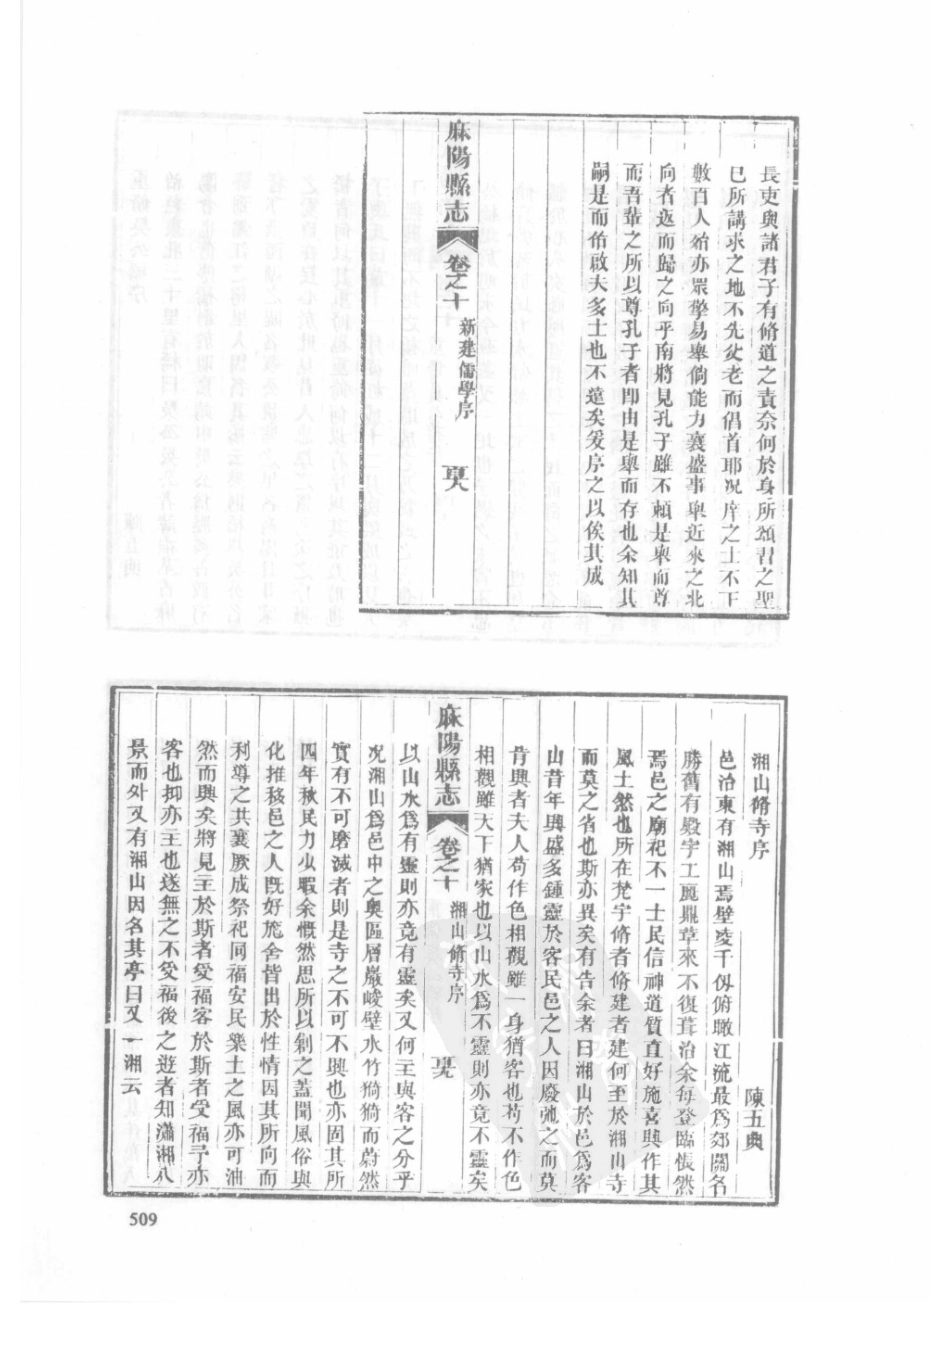 長吏與諸君子有脩道之責奈何於身所頌習之聖
巳所講求之地不先父老而倡首耶况庠之士不下
數百人殆亦眾擎易舉倘能力襄盛事舉近來之北
向者返而歸之向乎南將見孔子雖不賴是舉而尊
而吾輩之所以尊孔子者即由是舉而存也余知其
嗣是而佑啟夫多士也不遠矣爰序之以俟其成
麻陽縣志
卷之十
新建儒學序
湘山脩寺序
陳五典
邑治東有湘山焉壁凌千仭俯瞰江流最爲郊關名
勝舊有殿宇工麗鼎革來不復葺治余每登臨悵然
焉邑之廟祀不一士民信神道質直好施喜與作其
風土然也所在梵宇脩者脩建者建何至於湘山寺
而莫之省也斯亦異矣有告余者曰湘山於邑爲客
山昔年興盛多鍾靈於客民邑之人因廢弛之而莫
肯興者夫人苟作色相觀雖一身猶客也苟不作色
相觀雖天下猶家也以山水爲不靈則亦竟不靈矣
麻陽縣志
卷之十
湘山脩寺序
以山水爲有靈則亦竟有靈矣又何主與客之分乎
况湘山爲邑中之奧區層巖峻壁水竹猗猗而蔚然
實有不可磨滅者則是寺之不可不興也亦固其所
四年秋民力少暇余慨然思所以剙之蓋聞風俗與
化推移邑之人既好施舍皆出於性情因其所向而
利導之共襄厥成祭祀同福安民樂土之風亦可油
然而興矣將見主於斯者受福客於斯者受福予亦
客也抑亦主也遂無之不受福後之遊者知瀟湘八
景而外又有湘山因名其亭曰又一湘云
509